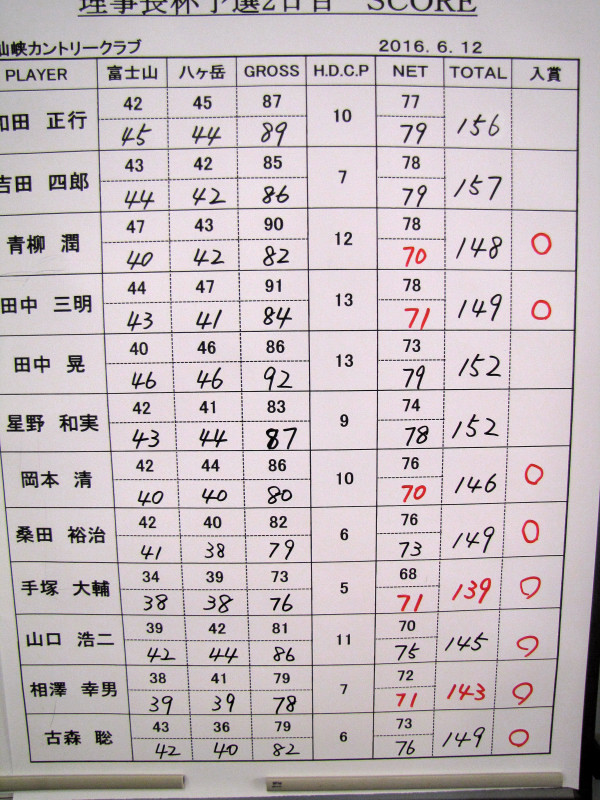 理事長杯予選2日目 SCORE
仙峡カントリークラブ 2016. 6. 12
PLAYER 富士山 八ヶ岳 GROSS H.D.C.P NET TOTAL 入賞
42 45 87 77
和田 正行 10 156
45 44 89 79
43 42 85 78
吉田 四郎 7 157
44 42 86 79
47 43 90 78
青柳 潤 12 148 ○
40 42 82 70
44 47 91 78
田中 三明 13 149 ○
43 41 84 71
40 46 86 73
田中 晃 13 152
46 46 92 79
42 41 83 74
星野 和実 9 152
43 44 87 78
42 44 86 76
岡本 清 10 146 ○
40 40 80 70
42 40 82 76
桑田 裕治 6 149 ○
41 38 79 73
34 39 73 68
手塚 大輔 5 139 ○
38 38 76 71
39 42 81 70
山口 浩二 11 145 ○
42 44 86 75
38 41 79 72
相澤 幸男 7 143 ○
39 39 78 71
43 36 79 73
古森 聡 6 149 ○
42 40 82 76